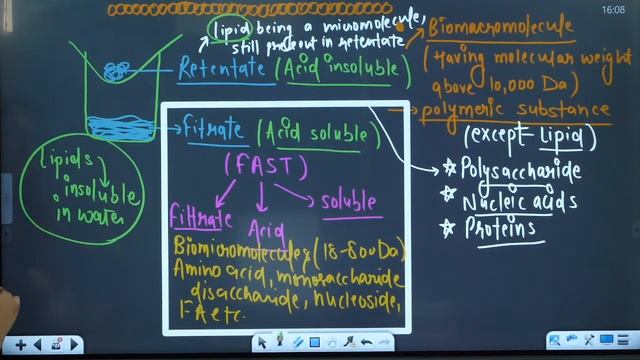 16:08
lipid being a micromolecule,
still present in retentate
Biomacromolecule
Retentate (Acid insoluble)
(Having molecular weight
above 10,000 Da)
polymeric substance
(except lipid)
Filtrate (Acid soluble)
(FAST)
Filtrate Acid soluble
lipids
insoluble
in water
Polysaccharide
Nucleic acids
Proteins
Biomicromolecules (18-800 Da)
Amino acid, monosaccharide
disaccharide, nucleoside,
FA etc.